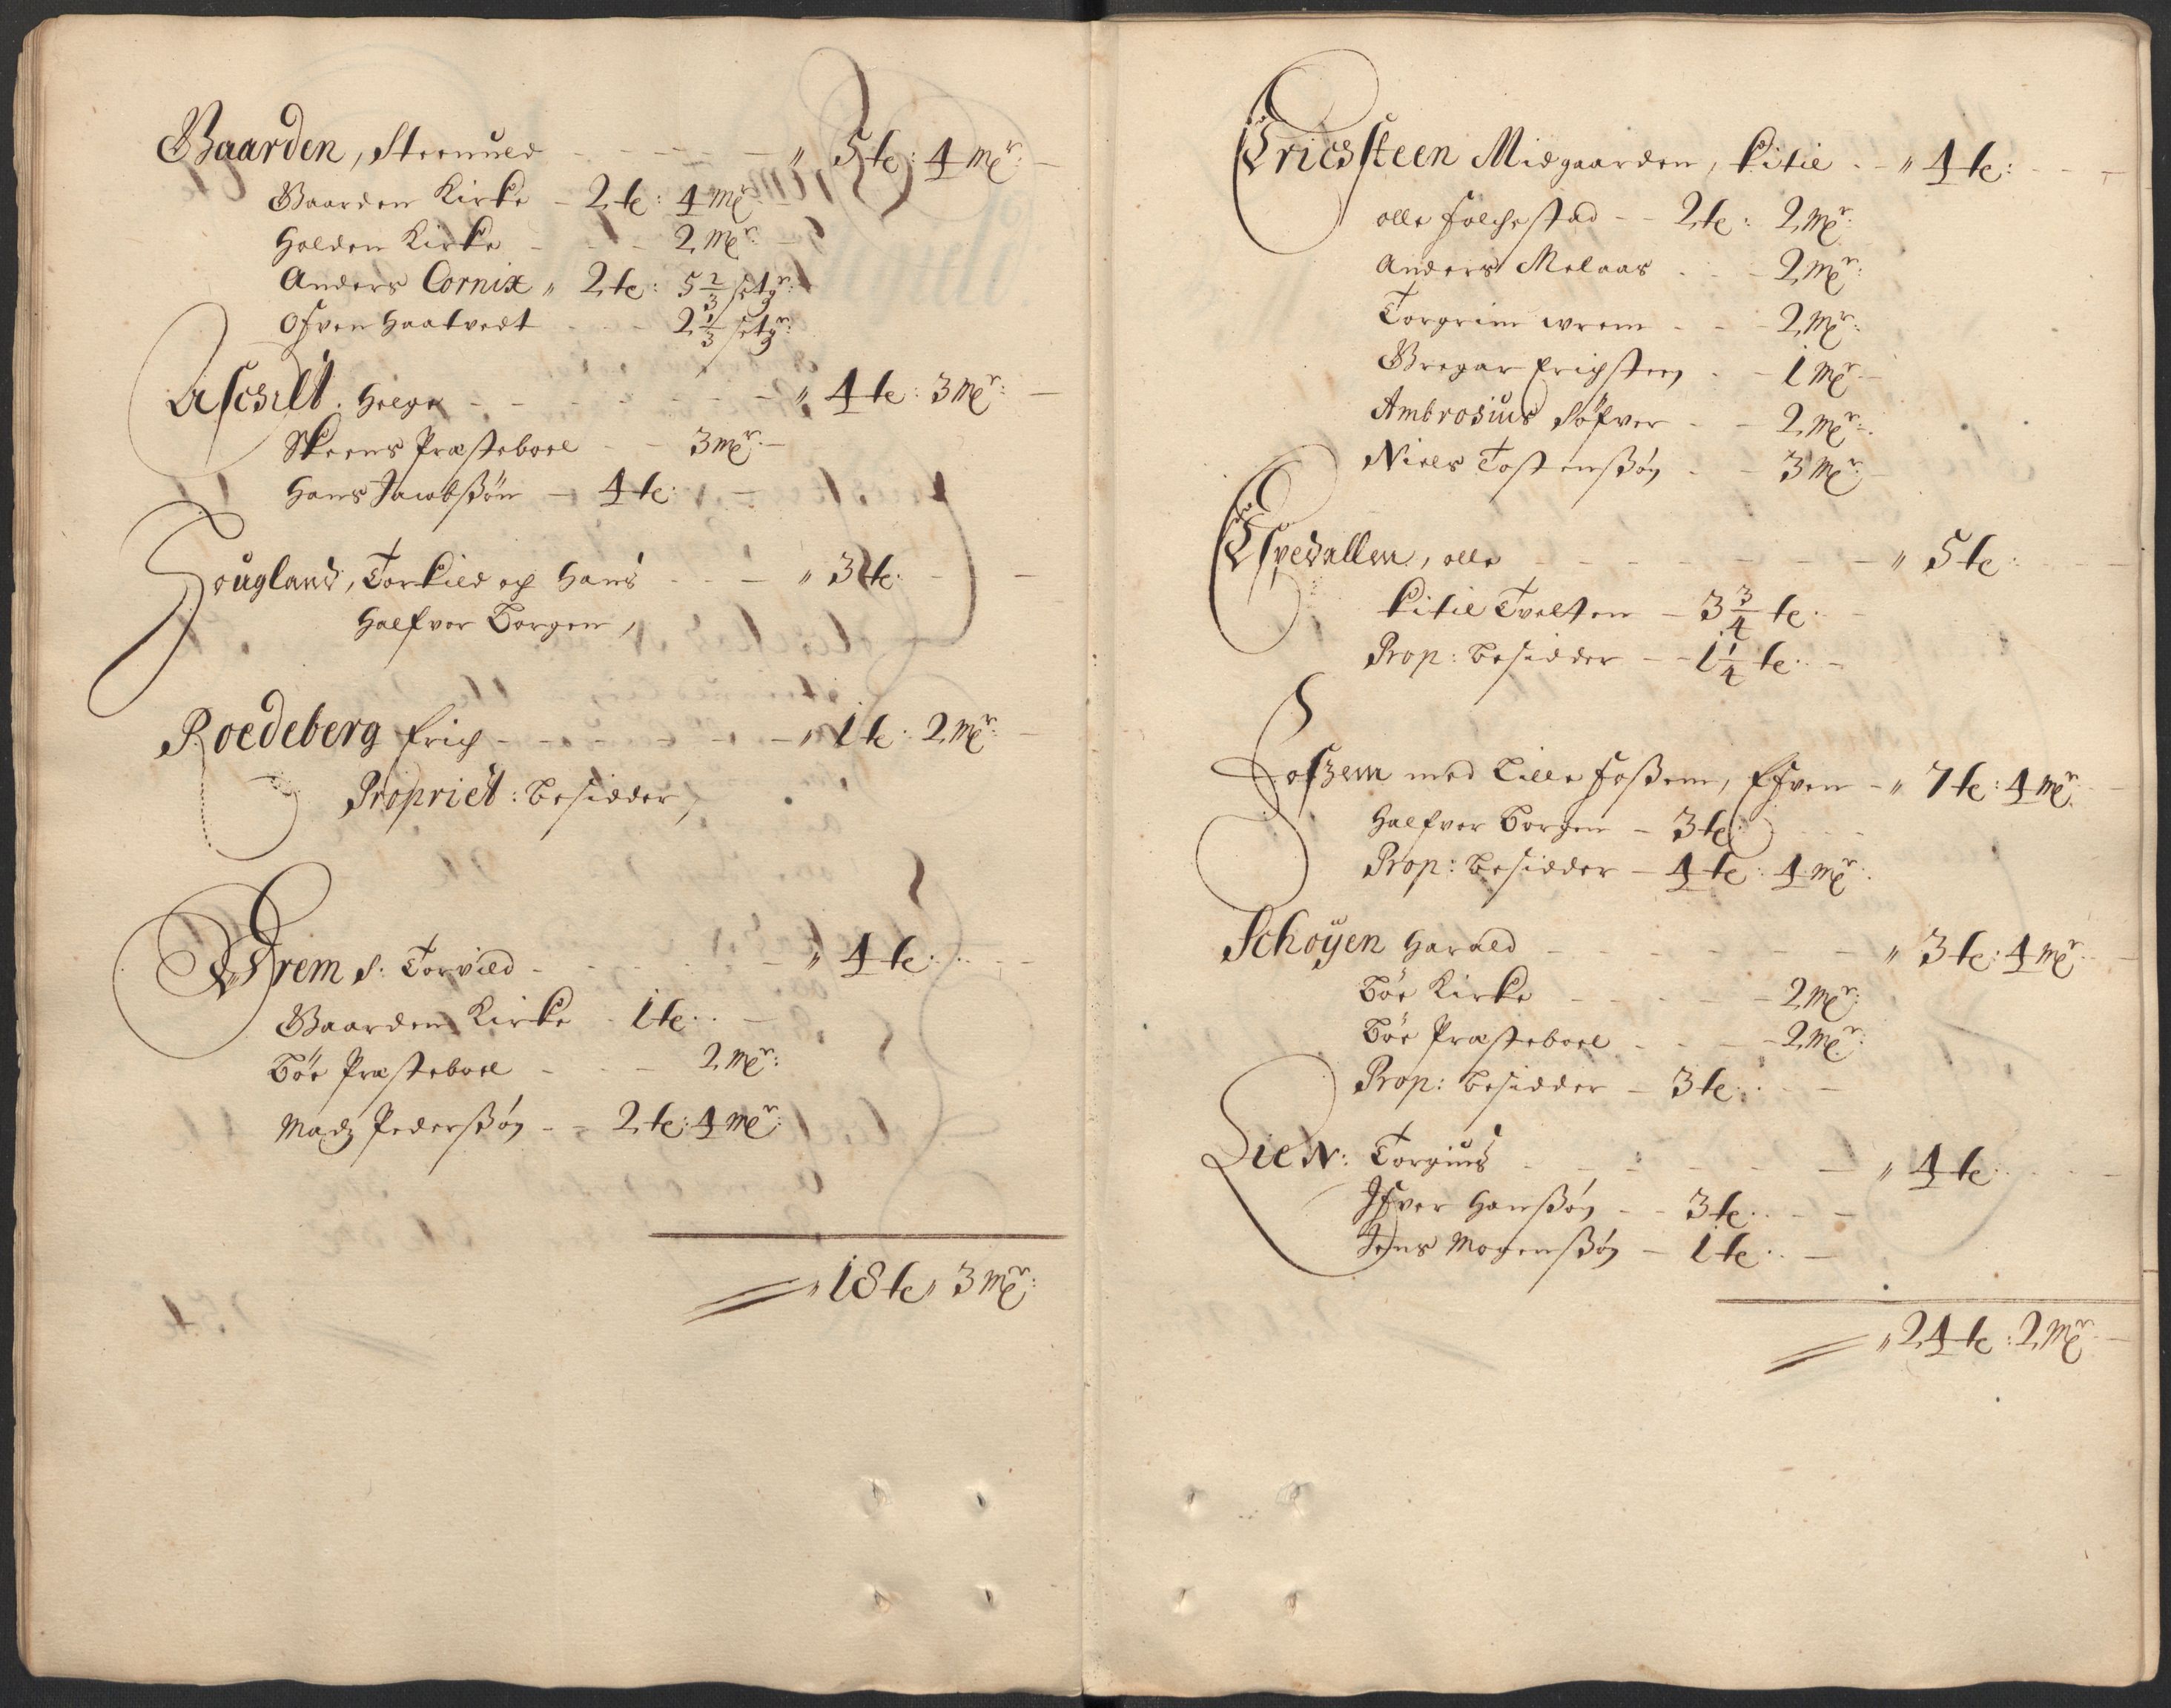 Gaarden, Steenuld - - - - „ 5 te: 4 mꝭr:
Gaarden Kirke - 2 te: 4 mꝭr:
Holden Kirke - - - 2 mꝭr:
Anders Cornix „ 2 te: 5 2/3 setgr:
Ofven Haatvedt - - 2 1/3 setgr:
Aschilt. Helge - - - - „ 4 te: 3 mꝭr:
Skeens Præsteboel - - 3 mꝭr:
Hans Jacobßøn - 4 te:
Hougland, Torkild og Hans - - „ 3 te:
Halfvor Borgen,
Roedeberg Erich - - - - „ 1 te: 2 mꝭr:
Propriet: besidder,
Wrem S: Torvild - - - - „ 4 te:
Gaarden Kirke - 1 te:
Bøe Præsteboel - - - 2 mꝭr:
Madz Pederßøn - - 2 te: 4 mꝭr:
„ 18 te „ 3 mꝭr:
Ericksteen Midgaarden, Kitil - - „ 4 te:
olle Folchestad - - 2 te: 2 mꝭr:
Anders Melaas - - - 2 mꝭr:
Torgrim wrem - - - 2 mꝭr:
Gregar Erichsteen - - 1 mꝭr:
Ambrosius Söfver - - 2 mꝭr:
Niels Tostenßøn - - 3 mꝭr:
Espedallen, olle - - - - „ 5 te:
Kitil Tveiten - 3 3/4 te:
Prop: besidder - - 1 1/4 te:
Foszem med Lille Foßem, Efven - „ 7 te: 4 mꝭr:
Halfvor Borgen - 3 te:
Prop: besidder - 4 te: 4 mꝭr:
Schoÿen Harald - - - - „ 3 te: 4 mꝭr:
Bøe Kirke - - - - 2 mꝭr:
Bøe Præsteboel - - - 2 mꝭr:
Prop: besidder - 3 te:
Lie N: Torgius - - - - „ 4 te:
Ifver Hanßøn - - 3 te:
Jens Mogenßøn - 1 te:
„ 24 te: 2 mꝭr: